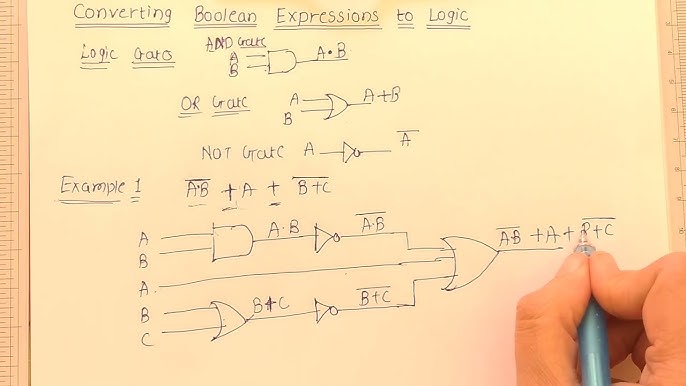 Converting Boolean Expressions to Logic
Logic Gates AND Gate A B A·B
OR Gate A B A+B
NOT Gate A A̅
Example 1 A̅·̅B̅ + A + B̅+̅C̅
A B A·B A̅·̅B̅
A
B C B+C B̅+̅C̅
A̅·̅B̅ + A + B̅+̅C̅